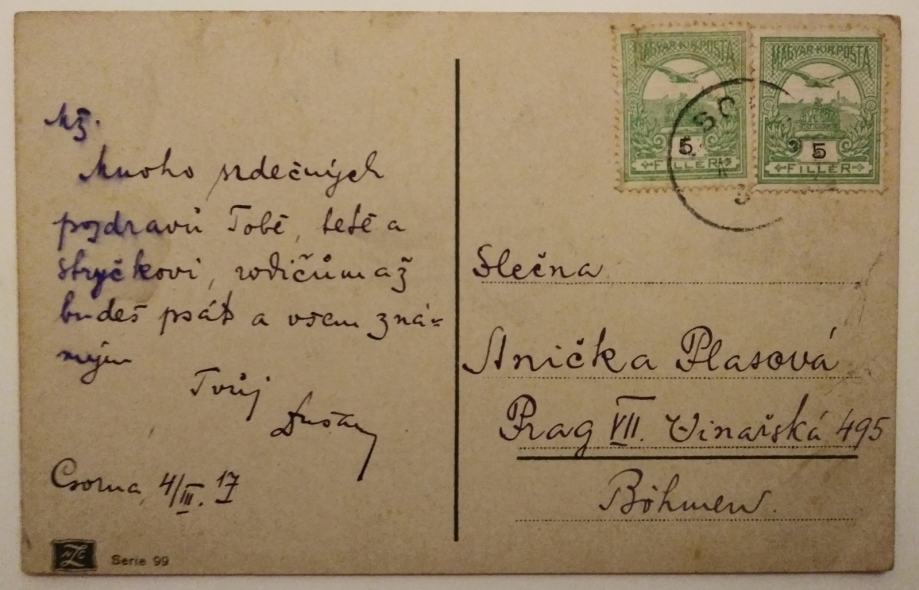 Mž.
Mnoho srdečných
pozdravů Tobě, tetě a
strýčkovi, rodičům až
budeš psát a všem zná=
mým
Tvůj
Dušan
Csorna, 4/III. 17
NZC
Serie 99
MAGYAR·KIR·POSTA
5
FILLER
MAGYAR·KIR·POSTA
5
FILLER
Slečna
Anička Plasová
Prag VII. Vinařská 495
Böhmen.